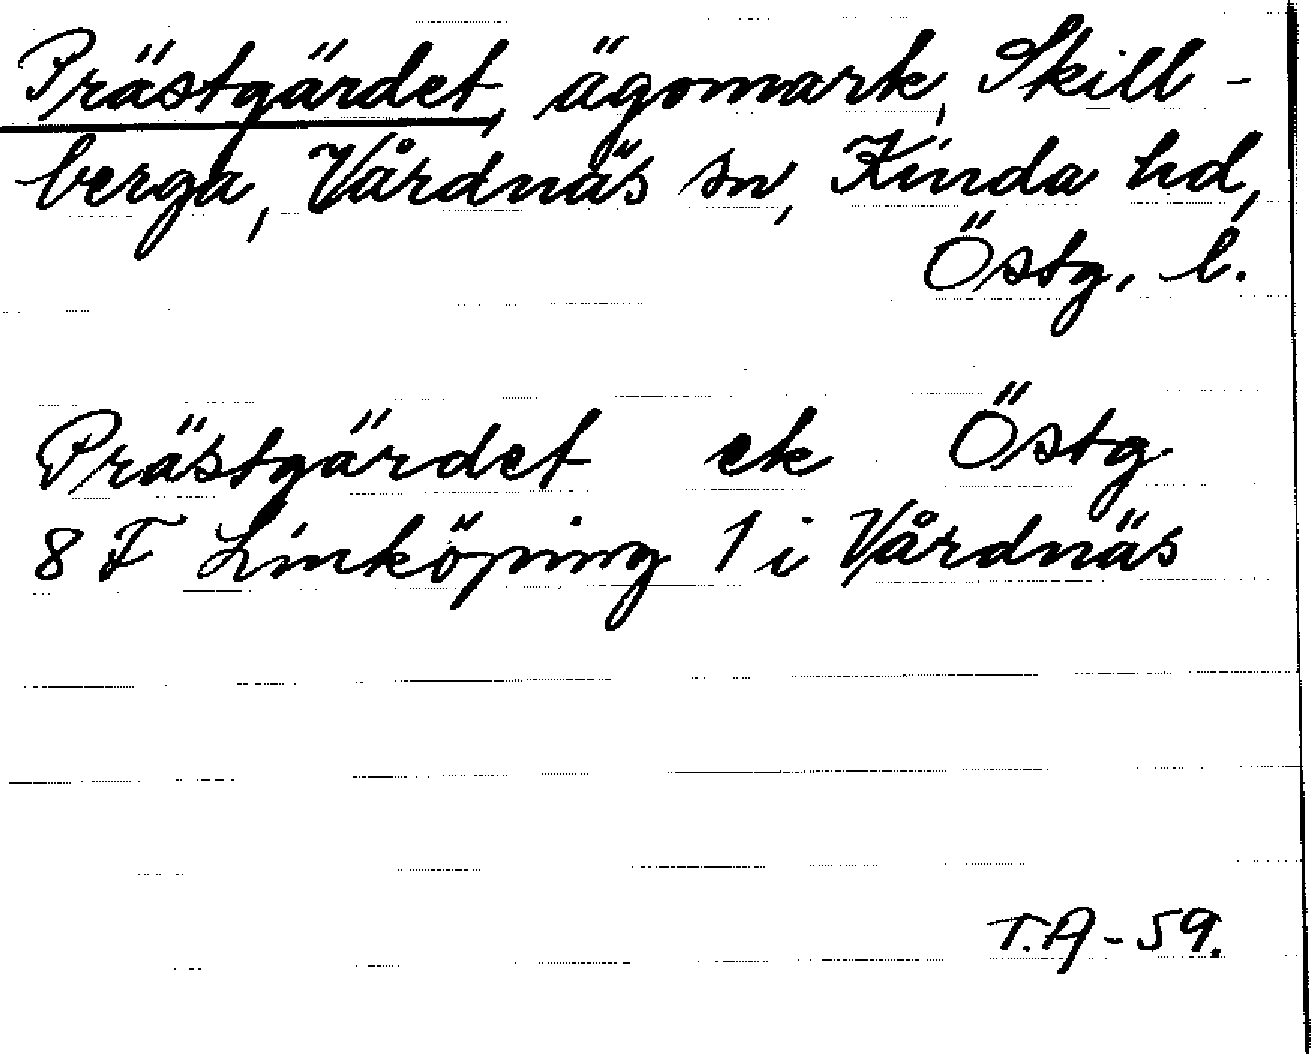 Prästgärdet, ägomark, Skill-
berga, Vårdnäs sn, Kinda hd,
Östg. l.
Prästgärdet ek Östg
8 F Linköping 1 i Vårdnäs
T.A-59.